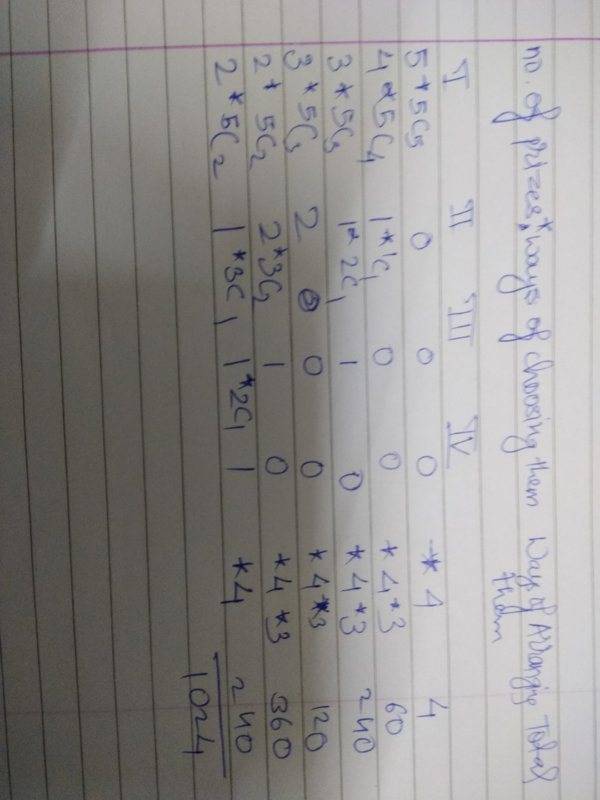 no. of prizes * ways of choosing them Ways of Arranging Total
them
I II III IV
5*5C5 0 0 0 *4 4
4*5C4 1*1C1 0 0 *4*3 60
3*5C3 1*2C1 1 0 *4*3 240
3*5C3 2 0 0 *4*3 120
2*5C2 2*3C2 1 0 *4*3 360
2*5C2 1*3C1 1*2C1 1 *4 240
1024